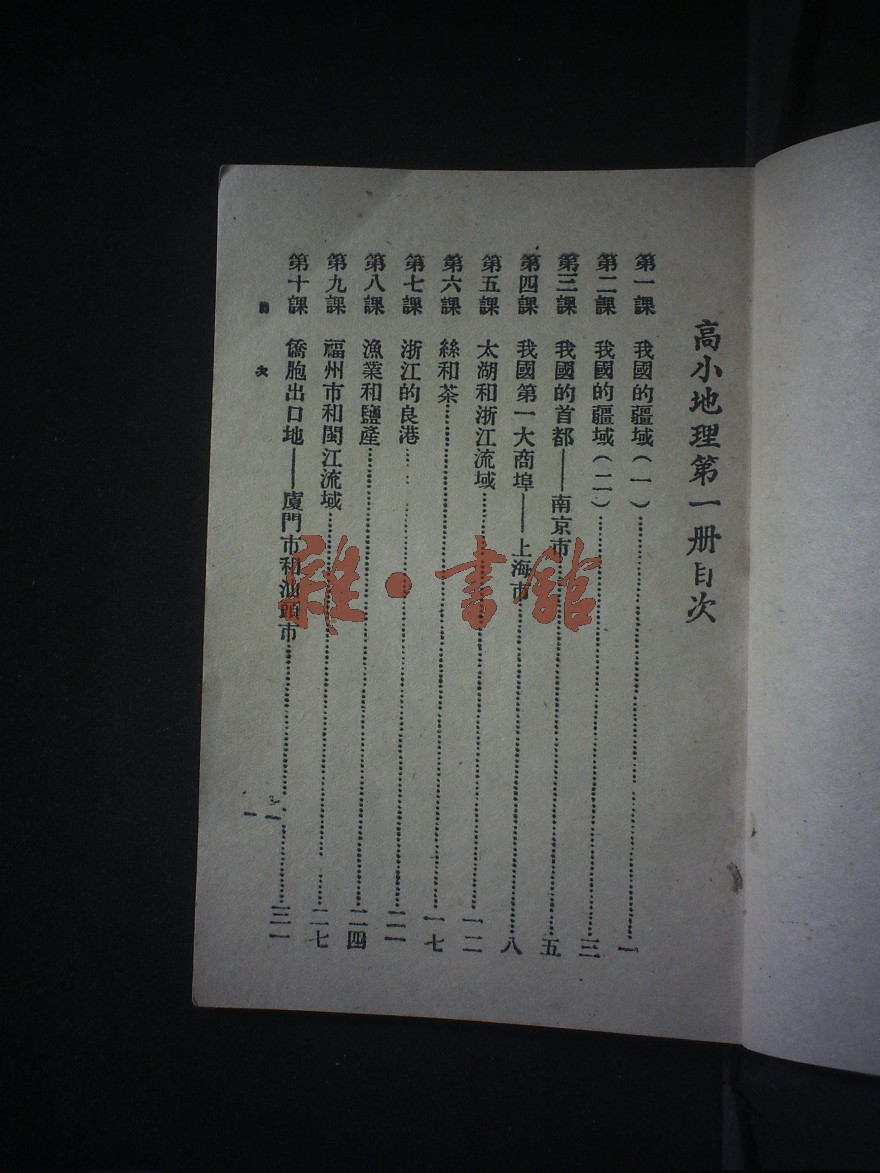 高小地理第一册目次
第一課 我國的疆域（一）……一
第二課 我國的疆域（二）……三
第三課 我國的首都——南京市……五
第四課 我國第一大商埠——上海市……八
第五課 太湖和浙江流域……一二
第六課 絲和茶……一七
第七課 浙江的良港……二一
第八課 漁業和鹽產……二四
第九課 福州市和閩江流域……二七
第十課 僑胞出口地——廈門市和汕頭市……三一
目次
一
雜·書館